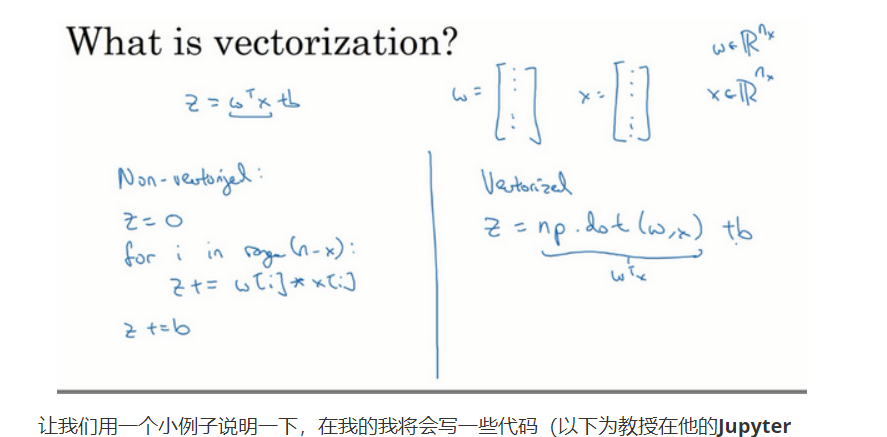 What is vectorization?
z = wᵀx + b
w = [⋮] x = [⋮]
w ∈ ℝⁿˣ
x ∈ ℝⁿˣ
Non-vectorized:
z = 0
for i in range(n-x):
z += w[i] * x[i]
z += b
Vectorized
z = np.dot(w,x) + b
wᵀx
让我们用一个小例子说明一下，在我的我将会写一些代码（以下为教授在他的Jupyter